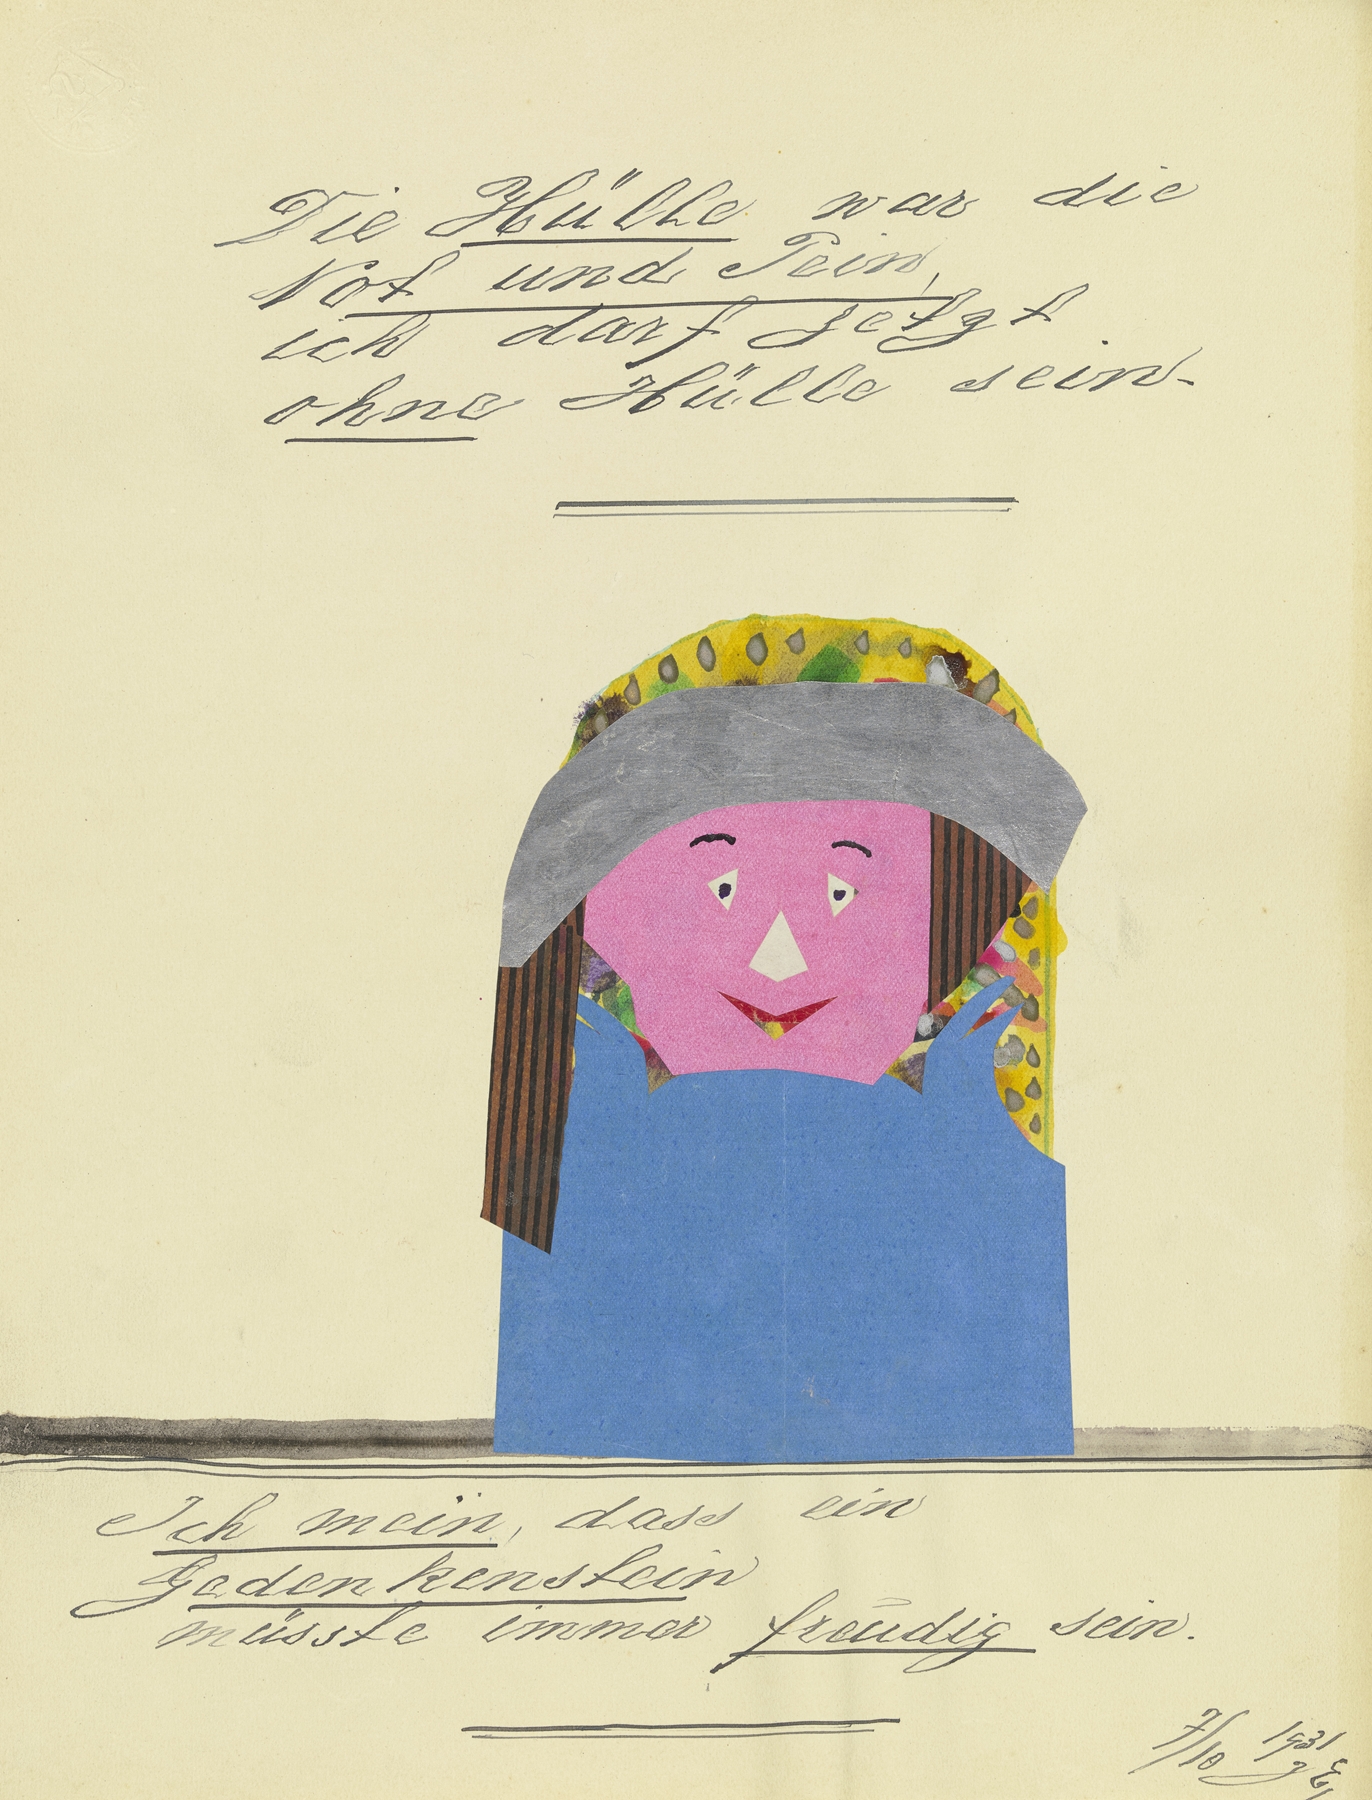 Die Hülle war die
Not und Pein,
ich darf jetzt
ohne Hülle sein-
Ich mein, dass ein
Gedenkenstein
müsste immer freudig sein.
7/10 1931